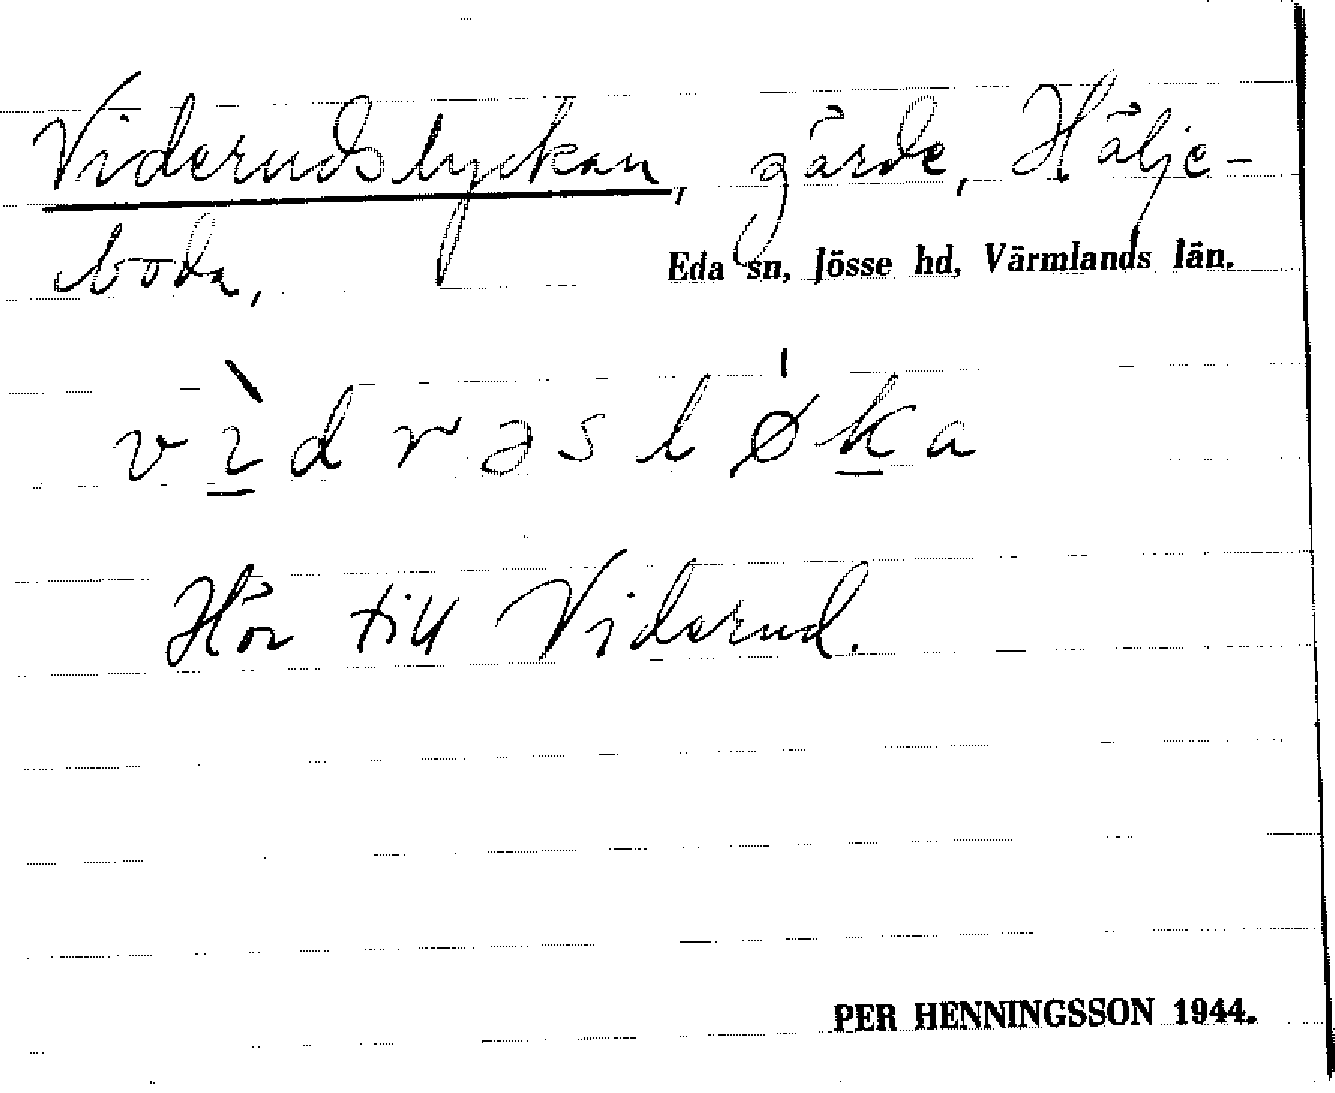 Viderudslyckan, gärde, Hälje-
boda,
Eda sn, Jösse hd, Värmlands län.
vìdrəslø'ka
Hör till Viderud.
PER HENNINGSSON 1944.